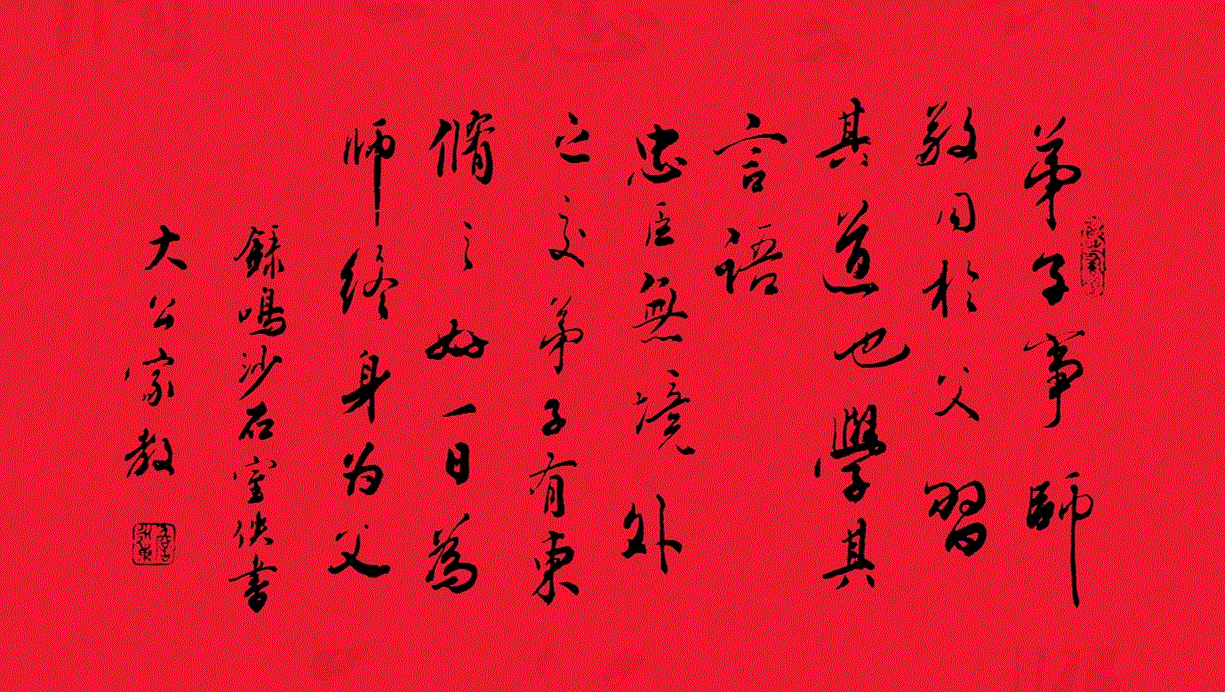 弟子事師
敬同於父習
其道也學其
言語
忠臣無境外
之交弟子有東
脩之好一日為
师终身为父
錄鳴沙石室佚書
大公家教